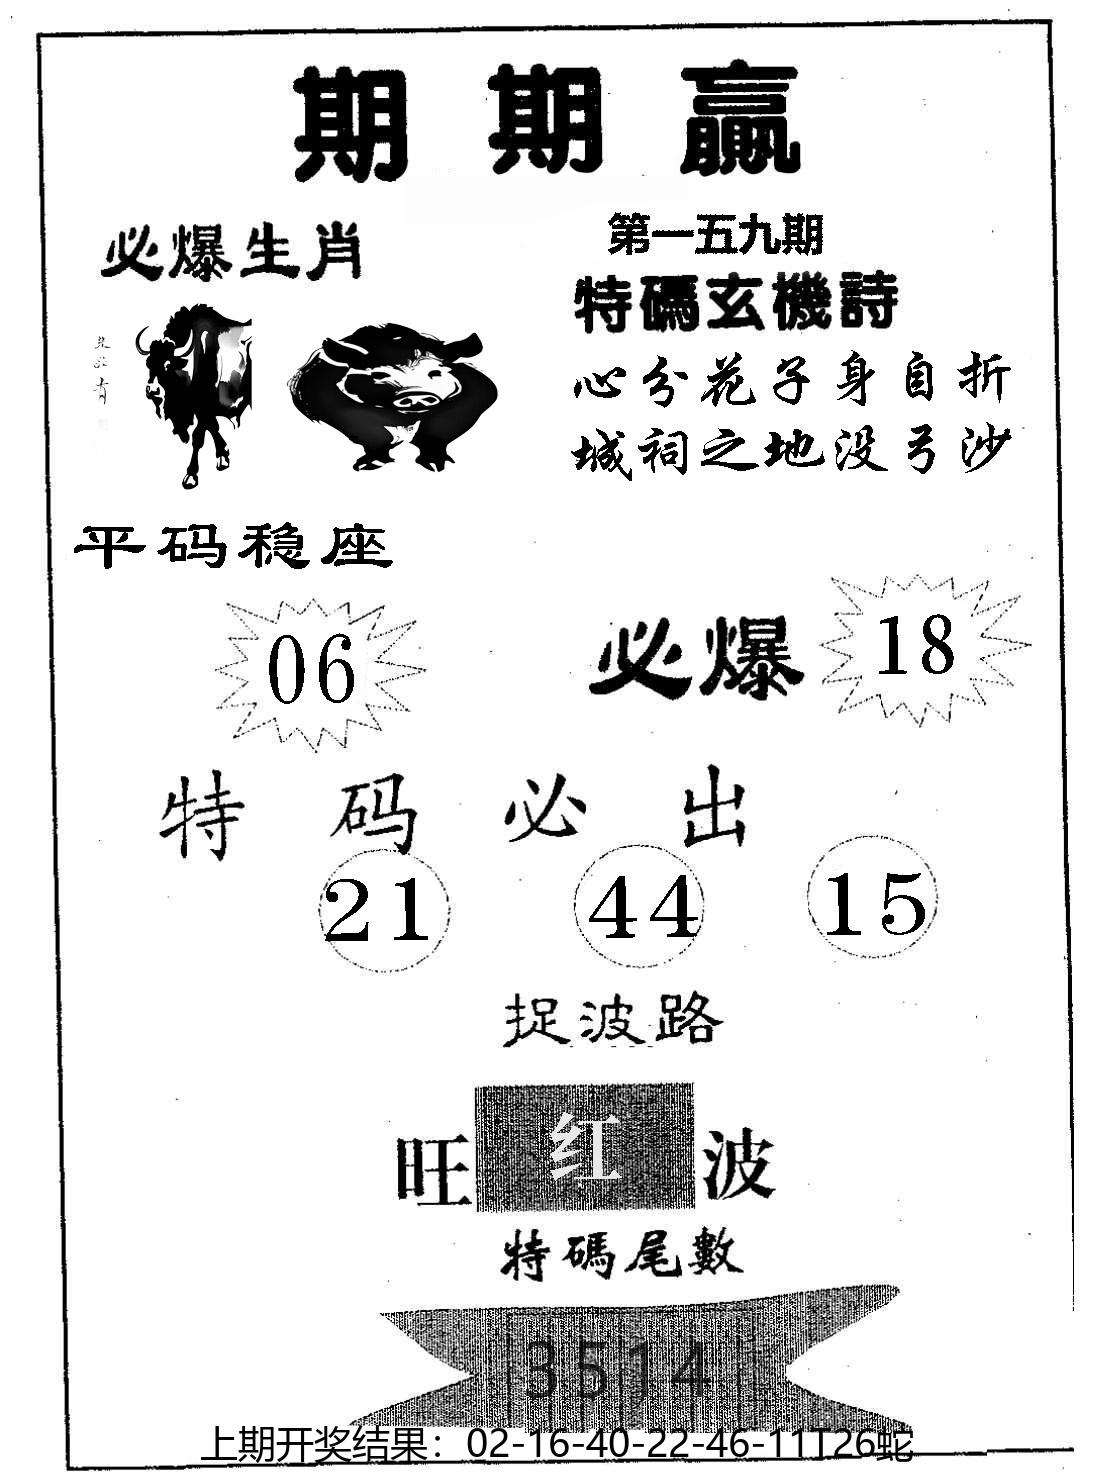 期期赢
必爆生肖
第一五九期
特碼玄機詩
心分花子身自折
城祠之地没弓沙
平码稳座
06
必爆 18
特码必出
21 44 15
捉波路
旺 红 波
特碼尾數
3514
上期开奖结果：02-16-40-22-46-11T26蛇